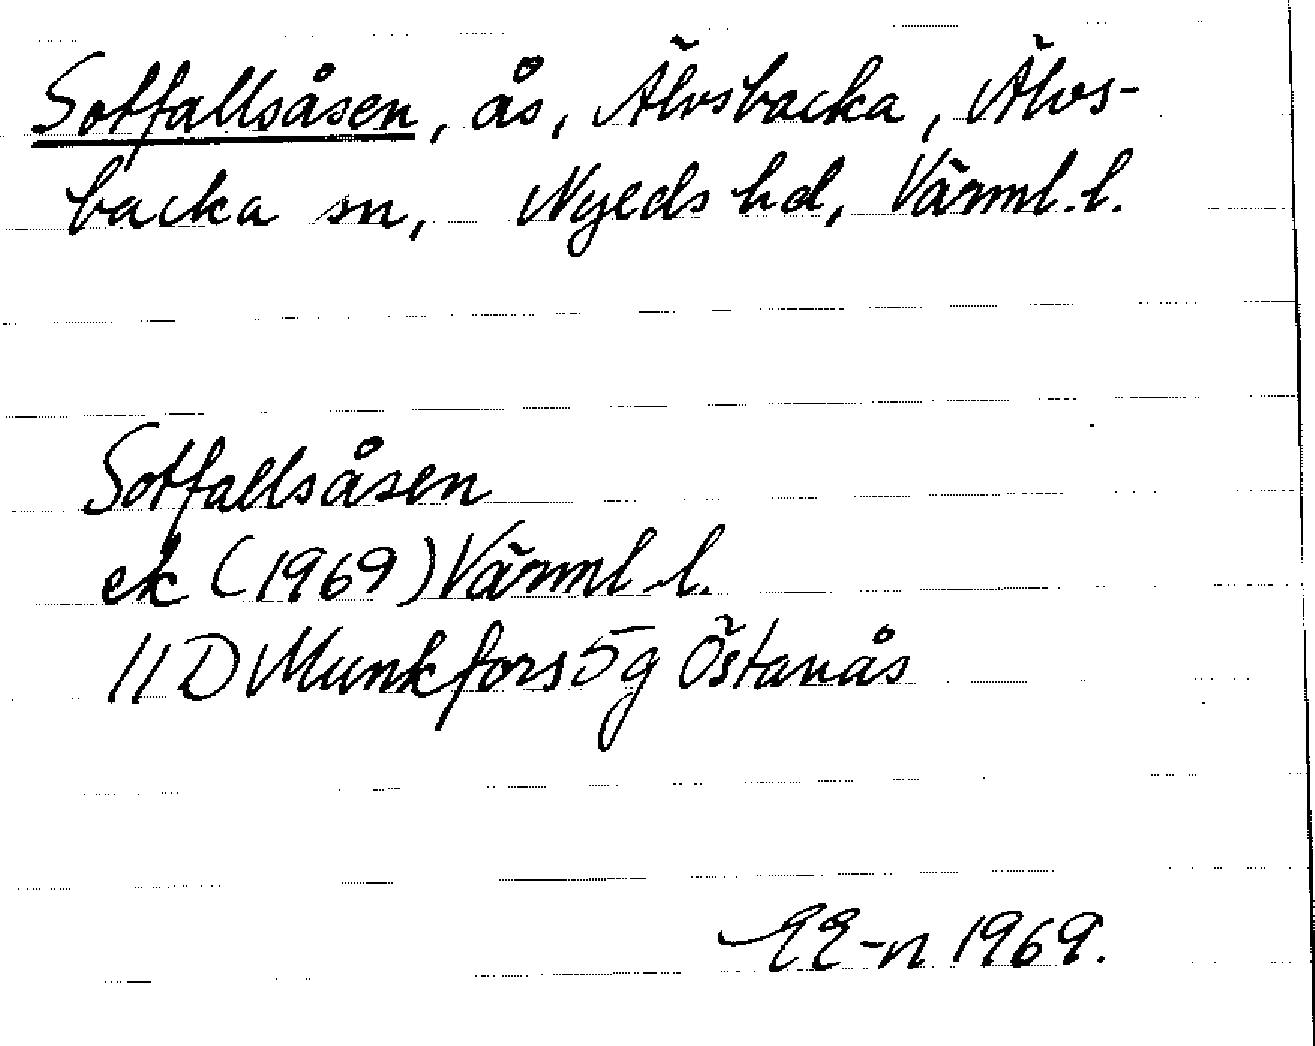 Sotfallsåsen, ås, Älvsbacka, Älvs-
backa sn, Nyeds hd, Värml. l.
Sotfallsåsen
ek (1969) Värml. l.
11D Munkfors 5g Östanås
EE-n 1969.